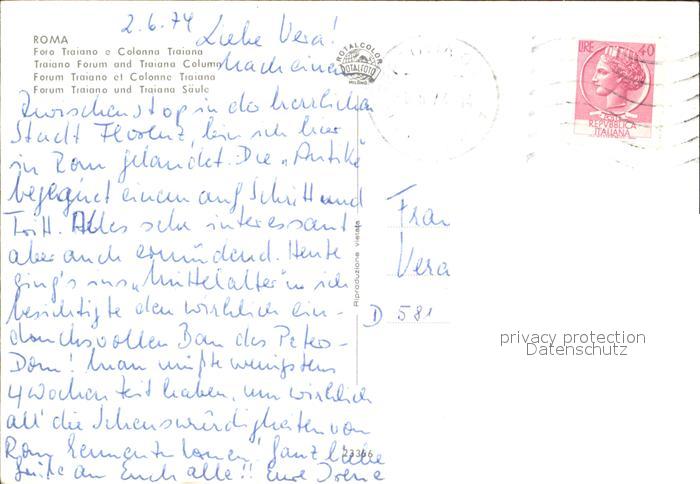 2.6.74
Liebe Vera!
ROMA
Foro Traiano e Colonna Traiana
Traiano Forum and Traiana Column
Forum Traiano et Colonne Traiana
Forum Traiano und Traiana Säule
Nach einem
Zwischenstop in der herrlichen
Stadt Florenz, bin ich hier
in Rom gelandet. Die „Antike"
begegnet einem auf Schritt und
Tritt. Alles sehr interessant
aber auch ermüdend. Heute
ging's ins „Mittelalter" u. ich
besichtigte den wirklich ein-
drucksvollen Bau des Peters-
Dom! Man müßte wenigstens
4 Wochen Zeit haben, um wirklich
all' die Sehenswürdigkeiten von
Rom kennenzulernen! Ganz liebe
Grüße an Euch alle!! Eure Irene
23366
ROTALCOLOR
ROTALFOTO
MILANO
Riproduzione vietata
LIRE 40
POSTE
REPVBBLICA
ITALIANA
Frau
Vera
D 581
privacy protection
Datenschutz